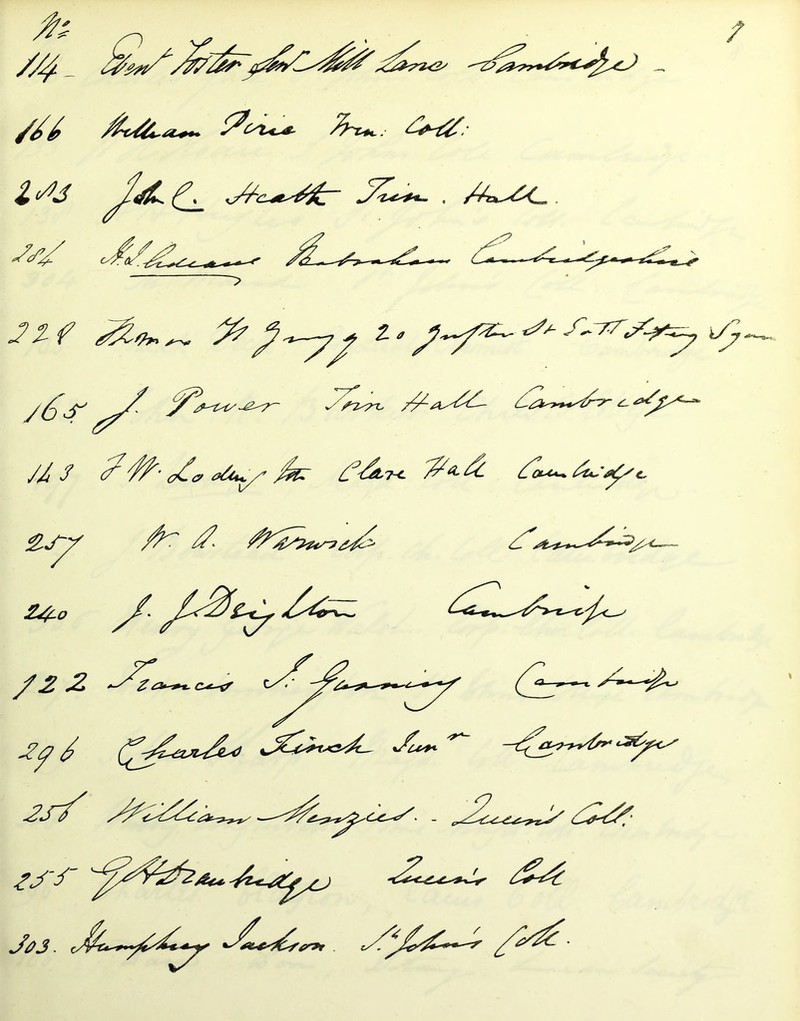 No. 7
114 - Ebenr Foster Senr Mill Lane Cambridge -
166 William Pirie Trin: Coll:
283 John C. Heath Trin. Hall.
284 H. J. Adeane Babraham Cambridgeshire
228 Thomas N 20 Grafton St East Fitzroy Square
165. J. Power Trin Hall Cambridge
143 F W. Lodington Clare Hall Cambridge
257 W. A. Warwick Cambridge
240 J. J. Deighton Cambridge
122 Francis J: Gunning Cambridge
296 Charles Finch Junr Cambridge
256 William Menzies. - Queen's Coll:
255 G H Drawbridge Queen's Coll
303. Humphrey Jackson. St John's Coll.